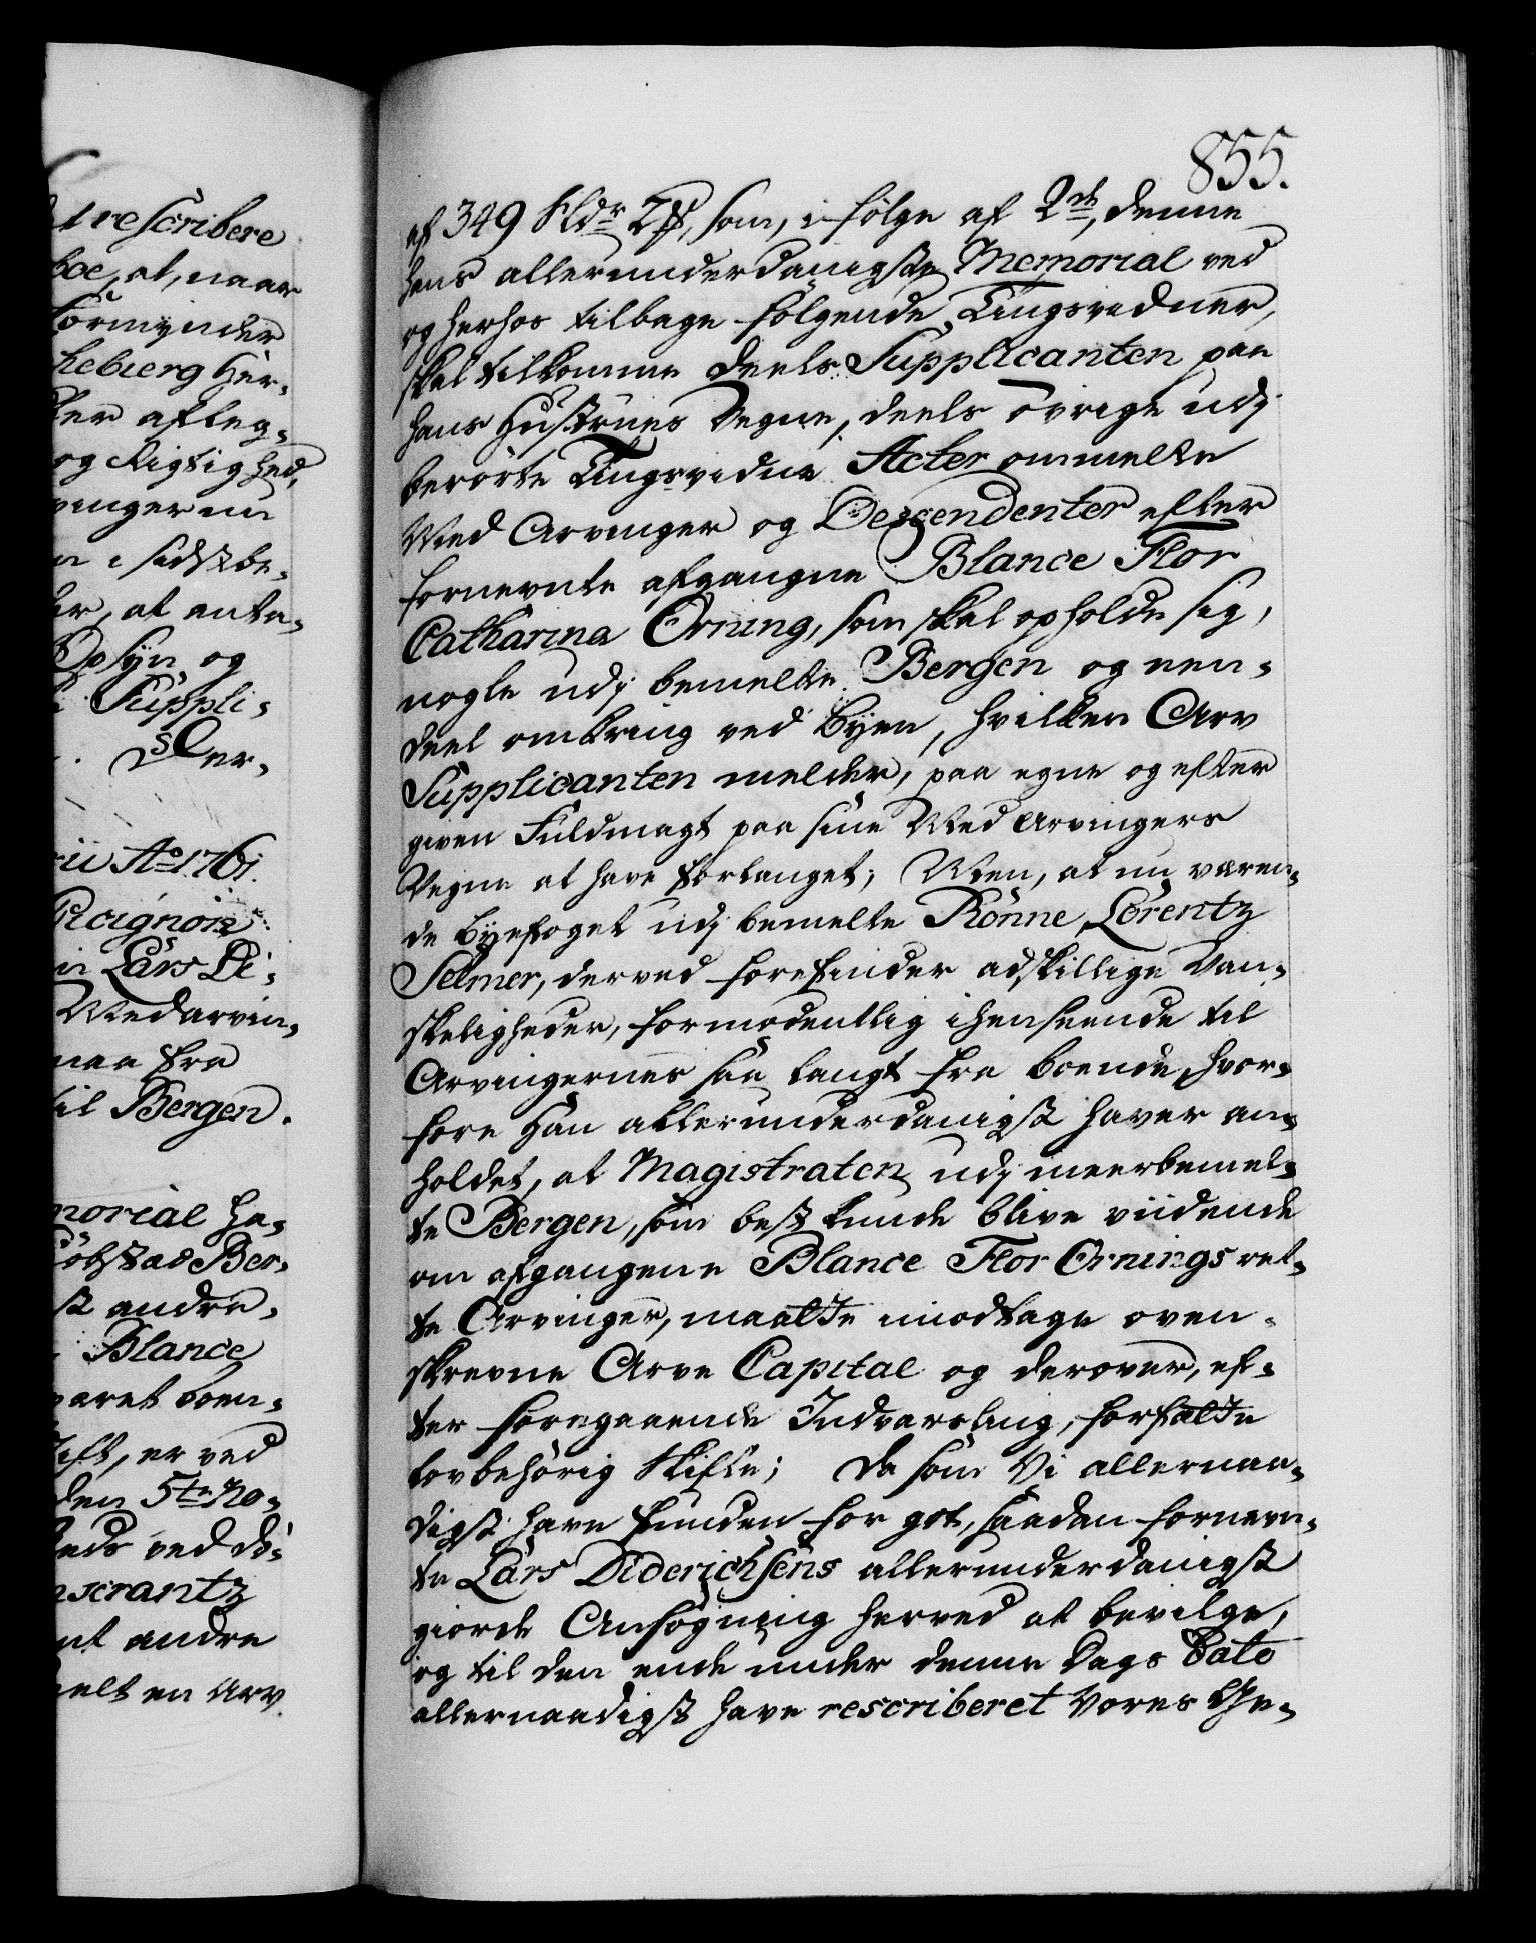 t rescribere
boe, at, naar
Formynder
hebierg Her-
ker afleg-
og Rigtighed,
vinger nu
n i sidstbe-
er, at anta-
Opsyn og
Suppli-
Der-
rii Ao 1761.
Picignois
n Lars Di-
Medarvin-
maa fra
til Bergen.
morial ha-
Kiöbstad Ber-
st andre-
Blance
varet boen-
ift, er ved
den 5te No-
heds ved di-
nscrantz
nt andre
melt en Arv
855.
af 349 Rldr 2 ß, som, i følge af 2de, denne
hans allerunderdanigste Memorial ved
og herhos tilbage følgende Tingsvidner,
skal tilkomme deels Supplicanten paa
hans Hustrues Vegne, deels övrige udj
berörte Tingsvidne Acter ommelte
Med Arvinger og Descendenter efter
fornevnte afgangne Blance Flor
Catharina Orning, som skal opholde sig,
nogle udj bemelte Bergen og een-
deel omkring ved Byen, hvilken Arv
Supplicanten melder, paa egne og efter
given Fuldmagt paa sine Med Arvingers
Vegne at have forlanget; Men, at nu væren-
de Byefoget udj bemelte Rönne, Lorentz
Selmer, derved forefinder adskillige Van-
skeligheder, formodentlig i henseende til
Arvingernes saa langt fra boende, hvor-
fore Han allerunderdanigst haver an-
holdet, at Magistraten udj meerbemel-
te Bergen, som best kunde blive viidende
om afgangene Blance Flor Ornings ret-
te Arvinger, maatte imodtage oven-
skrevne Arve Capital og derover, ef-
ter foregaaende Indvarsling, forfatte
lovbehörig Skifte; Da som Vi allernaa-
digst have funden for got, saadan fornevn-
te Lars Diderichsens allerunderdanigst
giorde Ansögning herved at bevilge,
og til den ende under denne Dags Dato
allernaadigst have rescriberet Vores Ge-